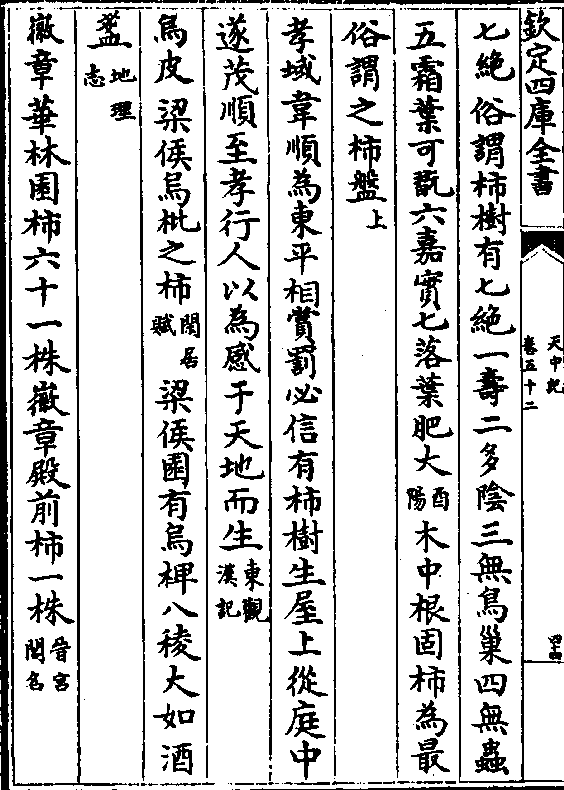 欽定四庫全書
天中記
卷五十二
四十四
七絶 俗謂柿樹有七絶一壽二多陰三無鳥巢四無蟲
五霜葉可翫六嘉實七落葉肥大 酉陽 木中根固柿為最
俗謂之柿盤 上
孝域 韋順為東平相賞罰必信有柿樹生屋上從庭中
遂茂順至孝行人以為感于天地而生 東觀漢記
烏皮 梁侯烏椑之柿 閒居賦 梁侯園有烏椑八稜大如酒
盃 地理志
徽章 華林園柿六十一株徽章殿前柿一株 晉宮閣名